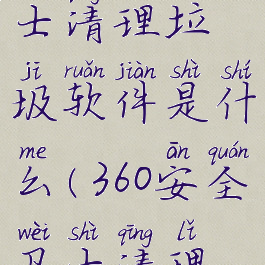 士清理垃
jī ruǎn jiàn shì shí
圾软件是什
me ān quán
么(360安全
wèi shì qīng lǐ
卫士清理